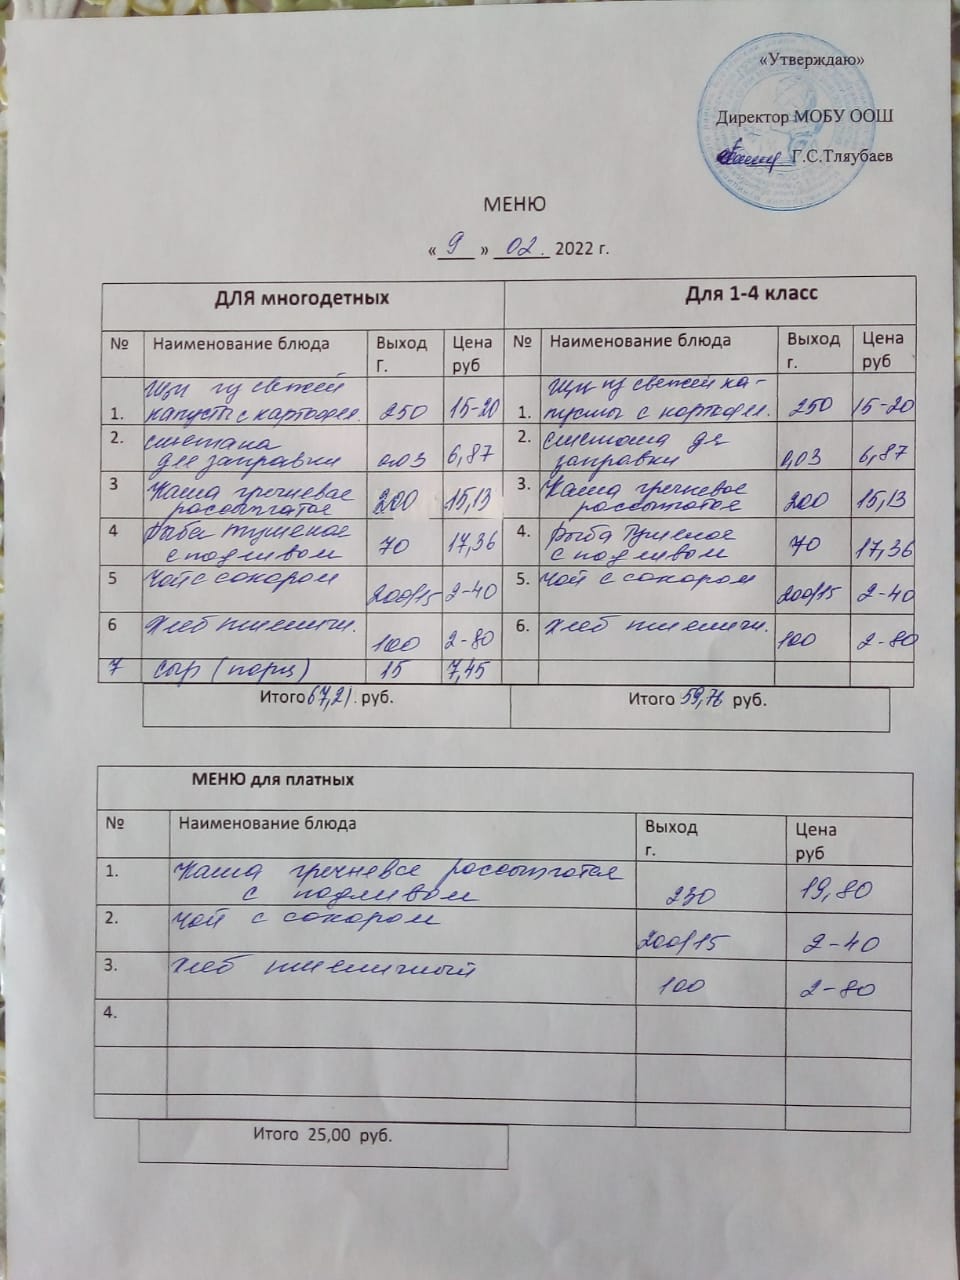 «Утверждаю»
Директор МОБУ ООШ
Г.С.Тляубаев
МЕНЮ
« 9 » 02. 2022 г.
ДЛЯ многодетных
Для 1-4 класс
№ Наименование блюда Выход г. Цена руб
№ Наименование блюда Выход г. Цена руб
1. Щи из свежей
капусты с картофел. 250 15-20
1. Щи из свежей ка-
пусты с картофел. 250 15-20
2. сметана
для заправки 0.03 6,87
2. сметана для
заправки 0,03 6,87
3 Каша гречневая
рассыпчатая 200 15,13
3. Каша гречневая
рассыпчатая 200 15,13
4 Рыба тушеная
с подливом 70 17,36
4. Рыба тушеная
с подливом 70 17,36
5 Чай с сахаром 200/15 2-40
5. Чай с сахаром 200/15 2-40
6 Хлеб пшеничн. 100 2-80
6. Хлеб пшеничн. 100 2-80
7 сыр (порц) 15 7,45
Итого 67,21. руб.
Итого 59,76 руб.
МЕНЮ для платных
№ Наименование блюда Выход г. Цена руб
1. Каша гречневая рассыпчатая
с подливом 230 19,80
2. Чай с сахаром 200/15 2-40
3. Хлеб пшеничный 100 2-80
4.
Итого 25,00 руб.